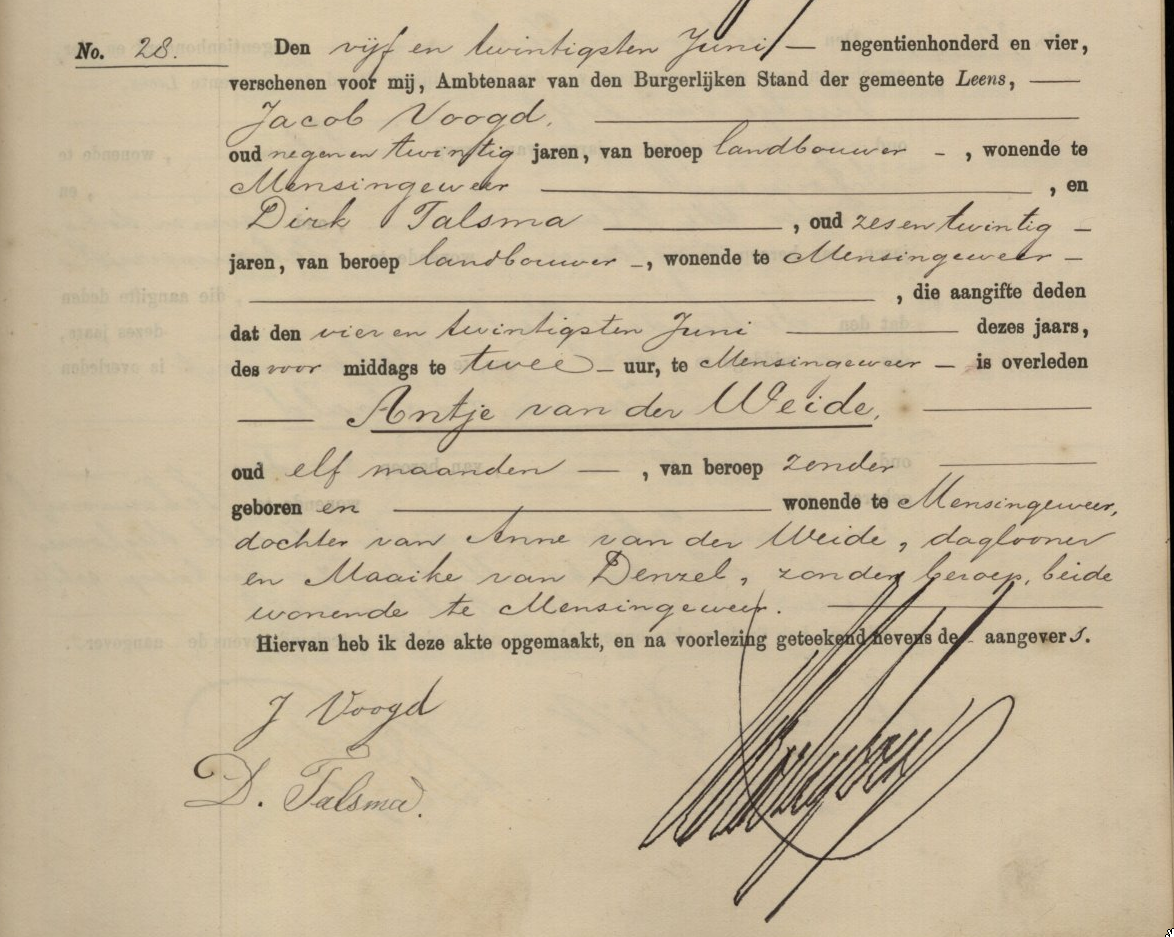 No. 28. Den vijf en twintigsten Juni — negentienhonderd en vier,
verschenen voor mij, Ambtenaar van den Burgerlijken Stand der gemeente Leens, —
Jacob Voogd,
oud negen en twintig jaren, van beroep landbouwer - , wonende te
Mensingeweer , en
Dirk Talsma , oud zes en twintig -
jaren, van beroep landbouwer -, wonende te Mensingeweer -
, die aangifte deden
dat den vier en twintigsten Juni dezes jaars,
des voor middags te twee - uur, te Mensingeweer - is overleden
Antje van der Weide,
oud elf maanden — , van beroep zonder
geboren en wonende te Mensingeweer,
dochter van Anne van der Weide, daglooner
en Maaike van Denzel, zonder beroep, beide
wonende te Mensingeweer.
Hiervan heb ik deze akte opgemaakt, en na voorlezing geteekend nevens de - aangevers.
J Voogd
D. Talsma.